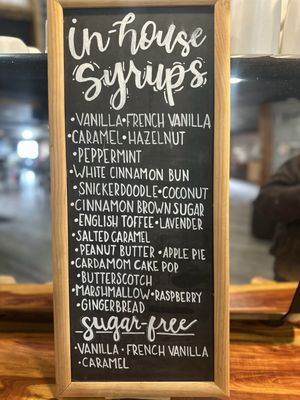 in-house
syrups
•VANILLA•FRENCH VANILLA
•CARAMEL•HAZELNUT
•PEPPERMINT
•WHITE CINNAMON BUN
•SNICKERDOODLE•COCONUT
•CINNAMON BROWN SUGAR
•ENGLISH TOFFEE•LAVENDER
•SALTED CARAMEL
•PEANUT BUTTER•APPLE PIE
•CARDAMOM CAKE POP
•BUTTERSCOTCH
•MARSHMALLOW•RASPBERRY
•GINGERBREAD
sugar-free
•VANILLA•FRENCH VANILLA
•CARAMEL